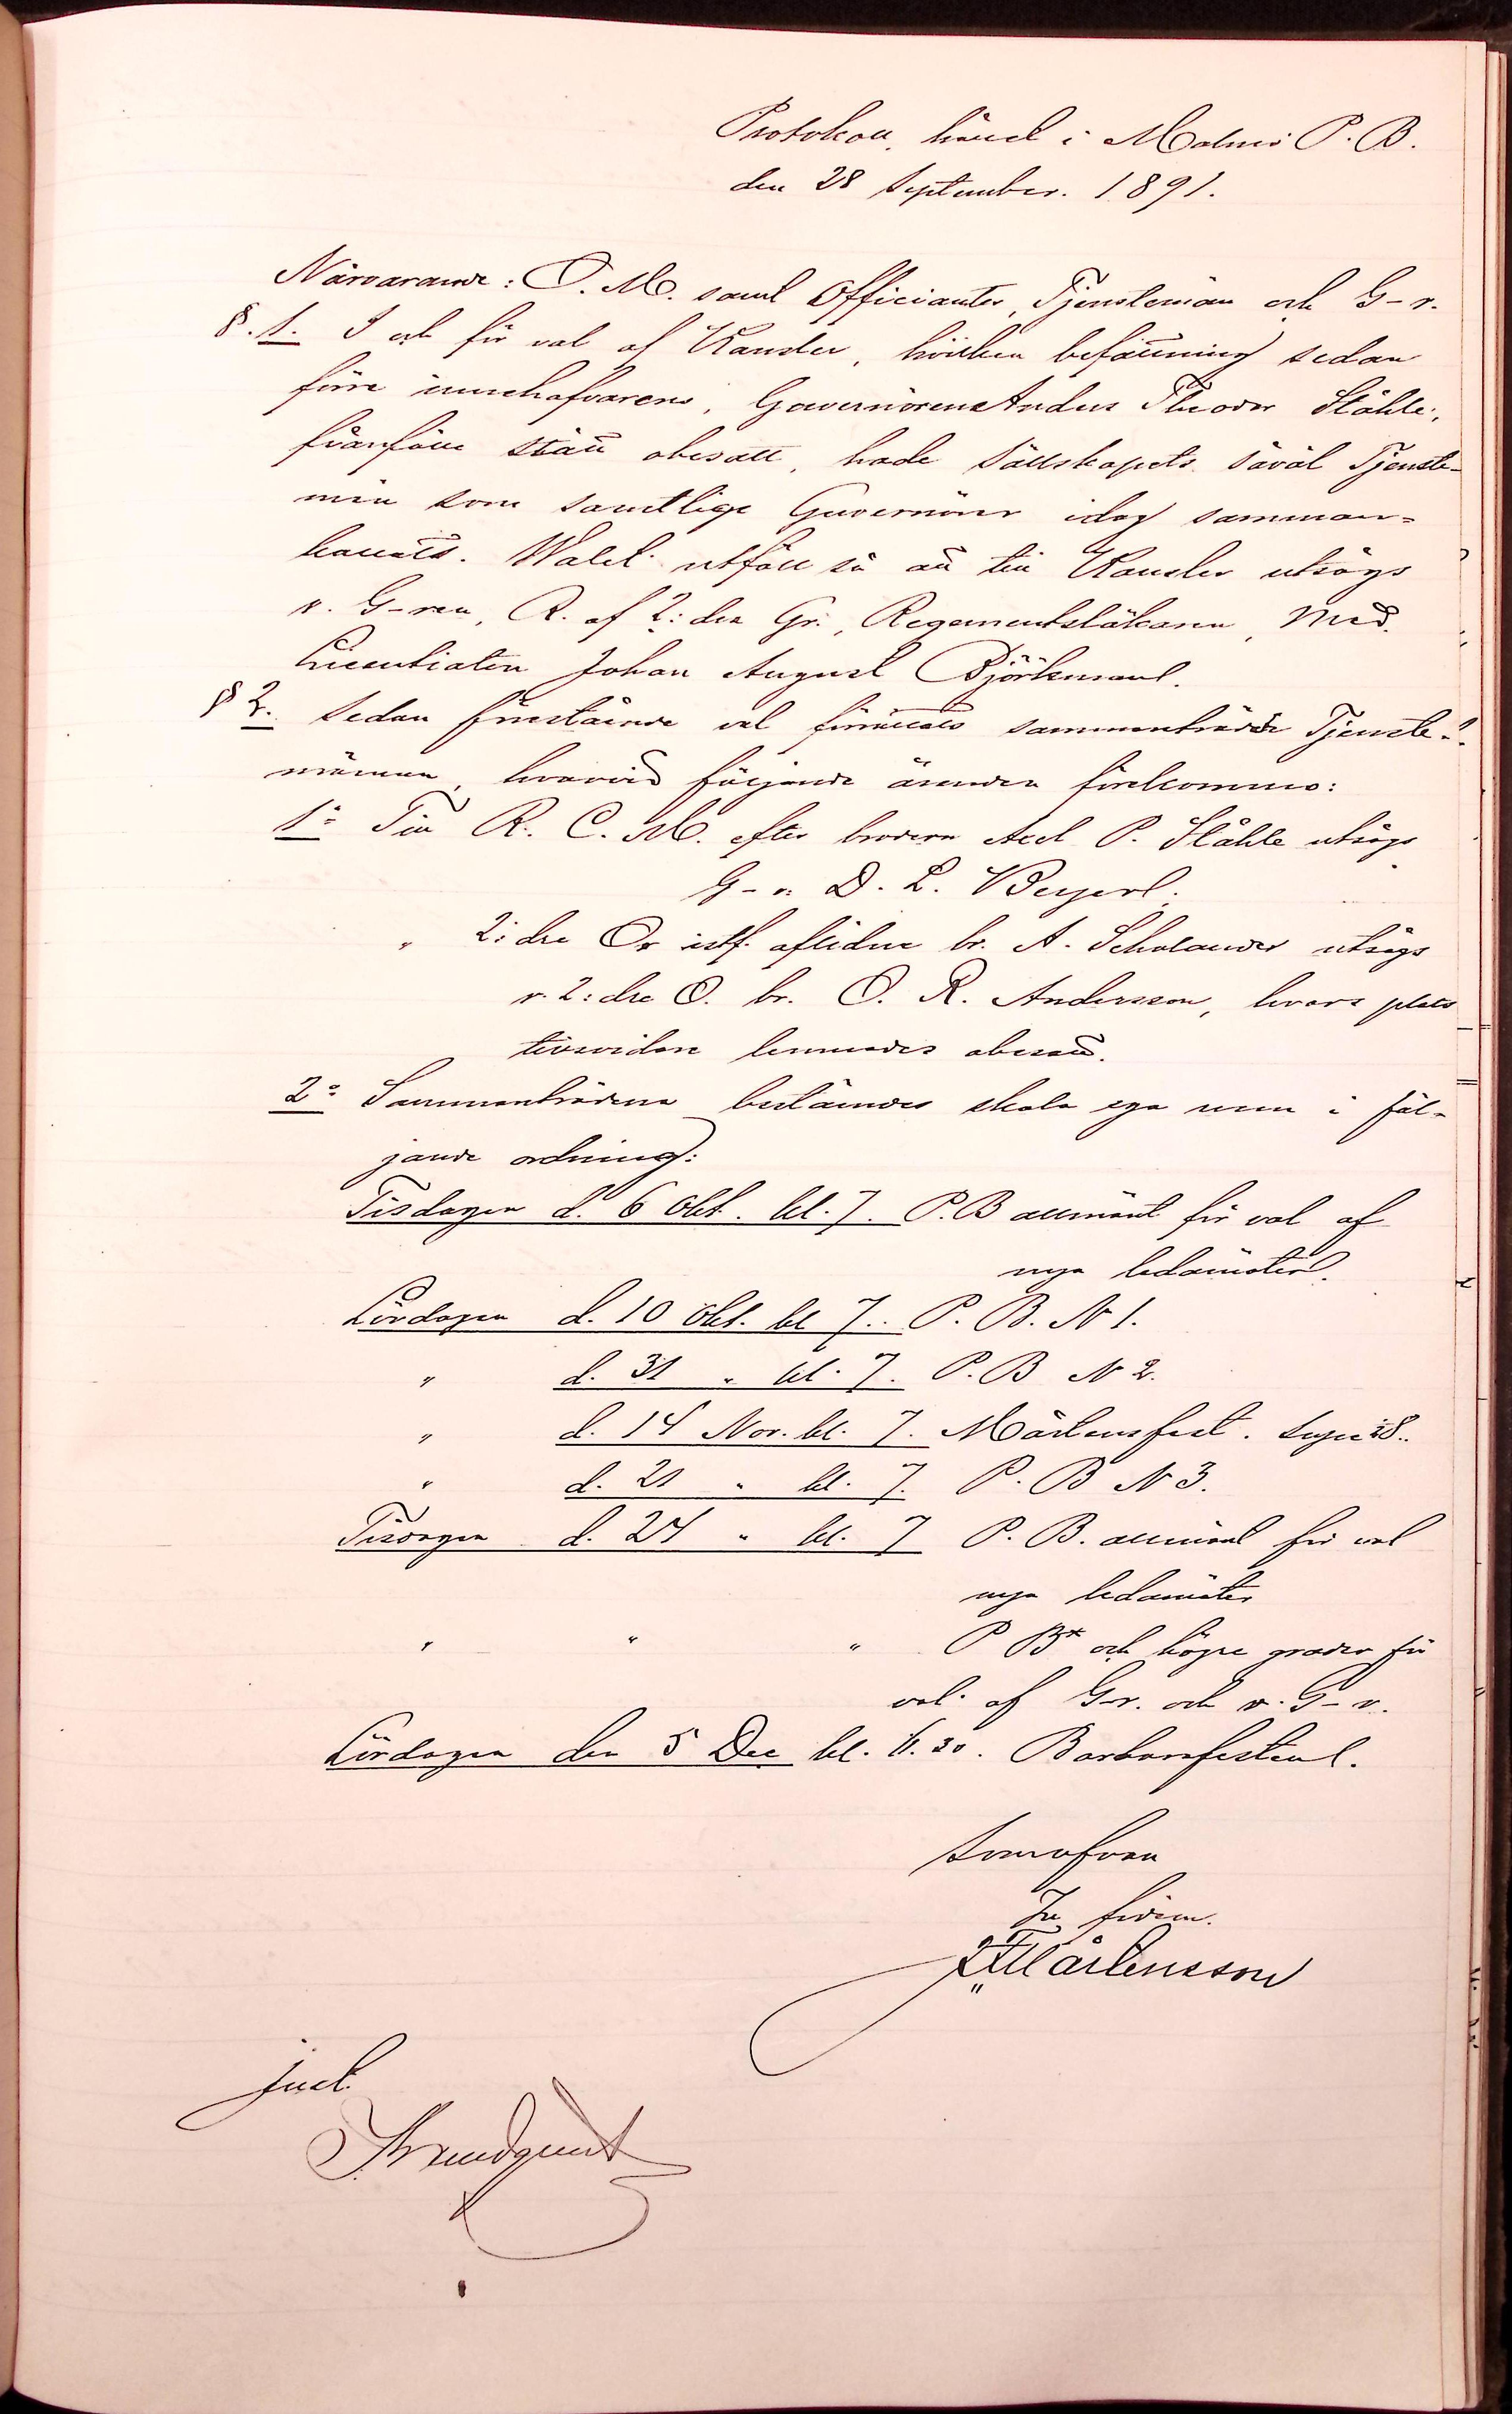 Protokoll, hållet i Malmö P. B.
den 28 September. 1891.
Närvarande: O. M. samt Officianter, Tjenstemän och G-r.
§. 1. I och för val af Kansler, hvilken befattning sedan
förre innehafvarens, Guvernörens Anders Theodor Ståhle,
frånfälle stått obesatt, hade Sällskapets såväl Tjenste-
män som samtlige Guvernörer idag samman-
kallats. Valet utföll så att till Kansler utsågs
v. G-ren, R. af 2:dra Gr., Regementsläkaren, Med.
Licentiaten Johan August Björkman.
§ 2. Sedan förestående val förrättats sammanträdde Tjenste-
männen, hvarvid följande ärenden förekommo:
1º Till R. C. M. efter brodern Axel P. Ståhle utsågs
G-r. D. L. Beyer.
" 2:dre O. istf. aflidne br. A. Scholander utsågs
v. 2:dre O. br. O. R. Andersson, hvars plats
tillsvidare lemnades obesatt.
2º Sammanträdena bestämdes skola ega rum i föl-
jande ordning:
Tisdagen d. 6 Okt. kl. 7. P. B allmänt för val af
nya ledamöter.
Lördagen d. 10 Okt. kl 7. P. B. N 1.
" d. 31 " kl. 7. P. B N 2.
" d. 14 Nov. kl. 7. Mårtensfest. Supé 8.
" d. 21 " kl. 7. P. B N 3.
Tisdagen d. 24 " kl. 7 P. B. allmänt för val
nya ledamöter
" " " P B* och högre grader för
val af G-r. och v. G-r.
Lördagen den 5 Dec kl. 6.30. Barbarafesten.
Som ofvan
In fidem.
Mårtensson
Just.